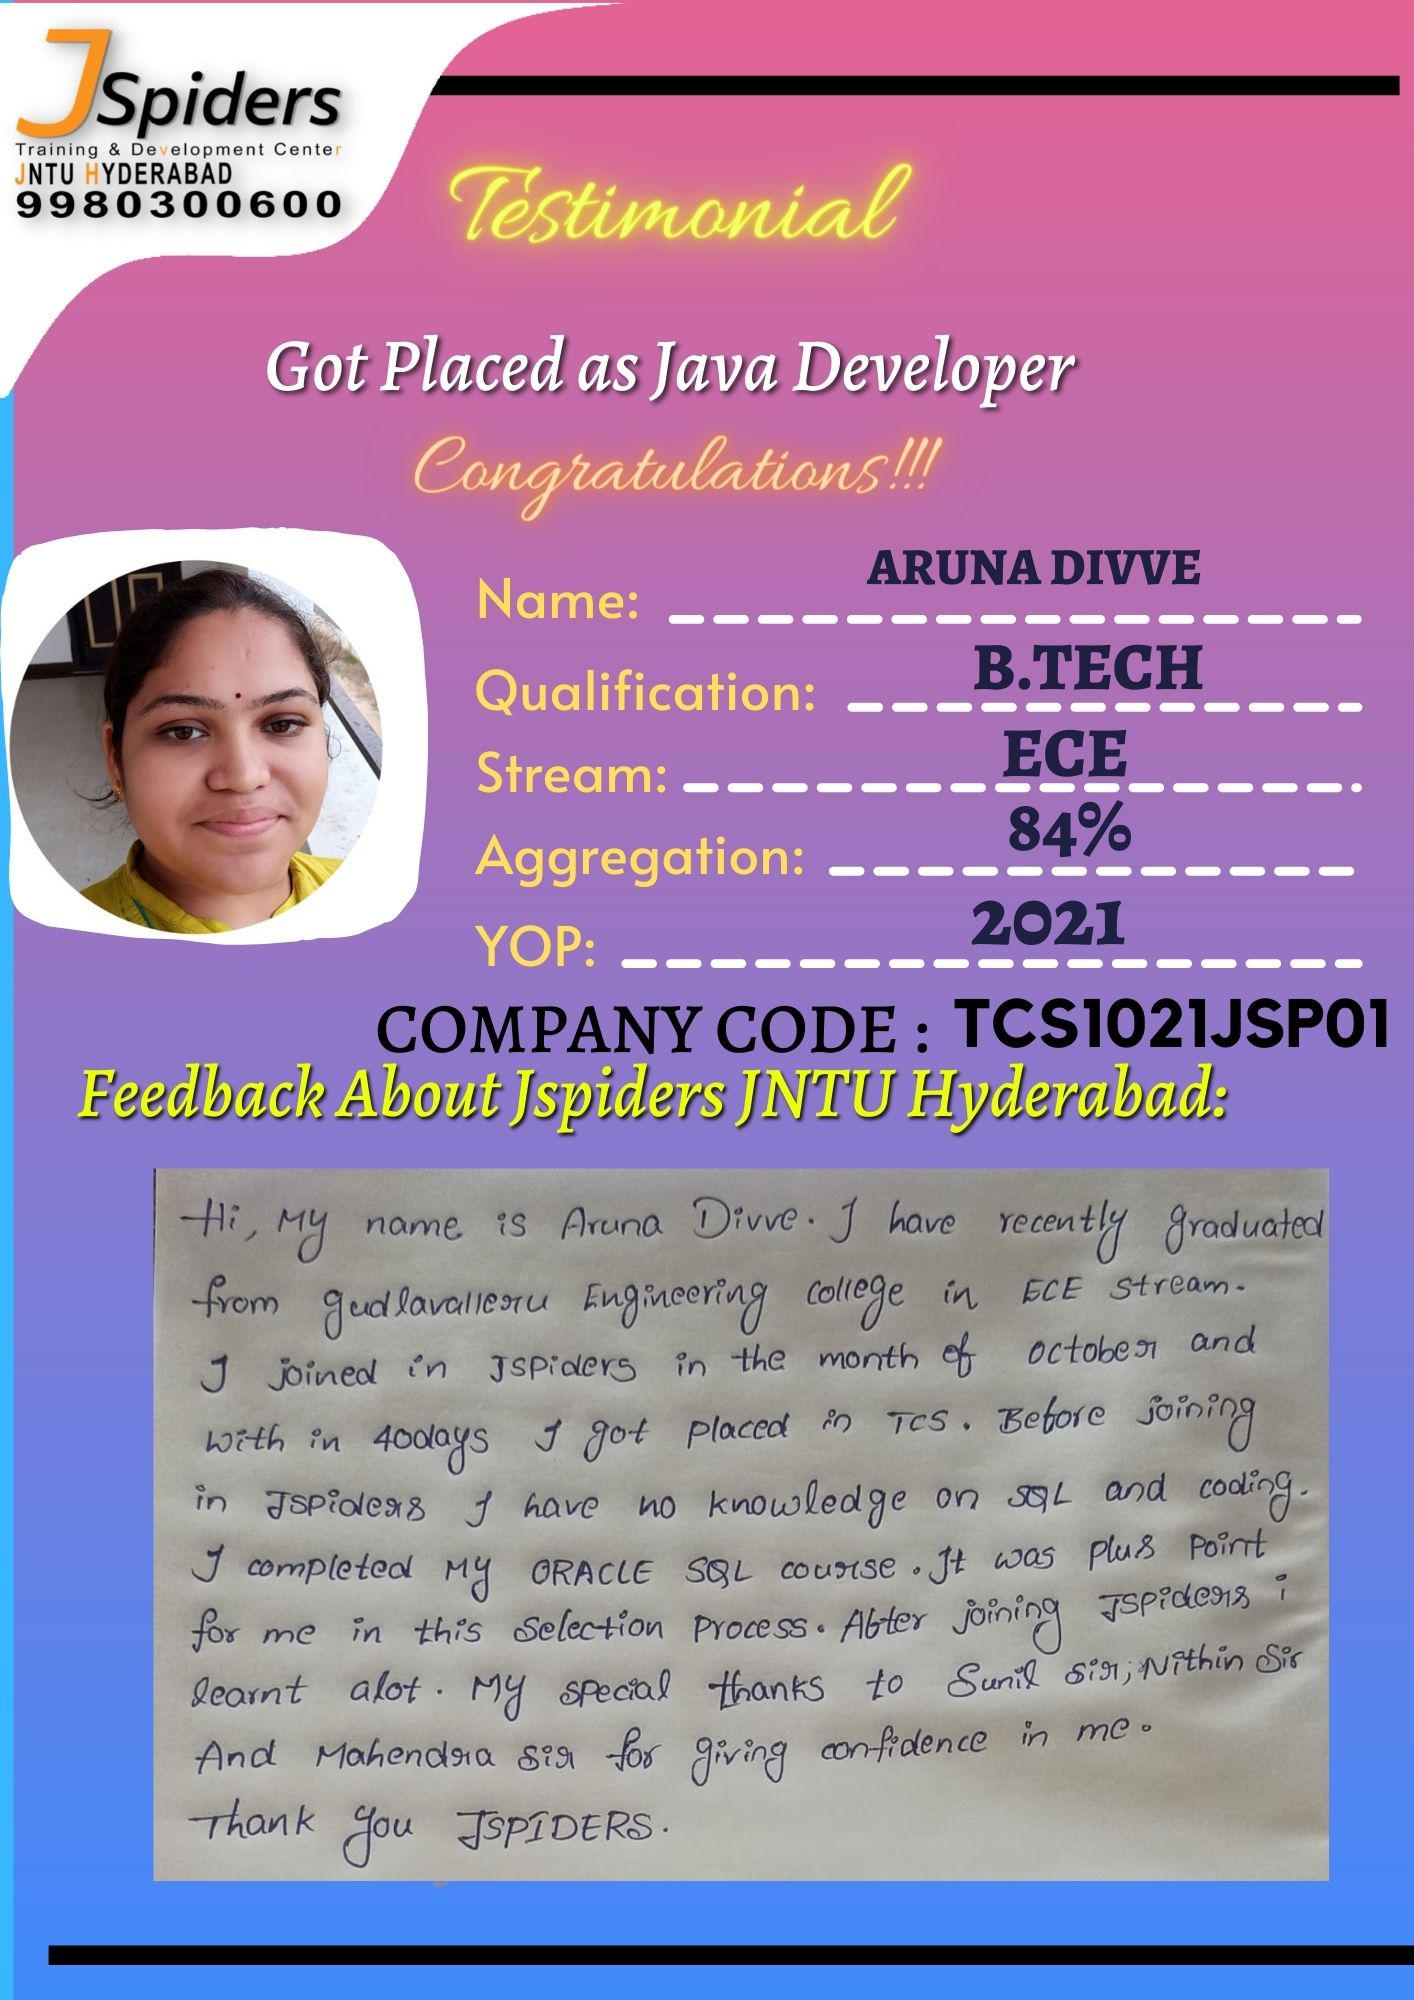 JSpiders
Training & Development Center
JNTU HYDERABAD
9980300600
Testimonial
Got Placed as Java Developer
Congratulations!!!
Name: ARUNA DIVVE
Qualification: B.TECH
Stream: ECE
Aggregation: 84%
YOP: 2021
COMPANY CODE : TCS1021JSP01
Feedback About Jspiders JNTU Hyderabad:
Hi, My name is Aruna Divve. I have recently graduated
from gudlavalleru Engineering college in ECE stream.
I joined in JSPiders in the month of october and
with in 40days I got placed in TCS. Before joining
in JSPiders I have no knowledge on SQL and coding.
I completed My ORACLE SQL course. It was plus point
for me in this selection process. After joining JSPiders i
learnt alot. My special thanks to Sunil sir, Nithin Sir
And Mahendra sir for giving confidence in me.
Thank you JSPIDERS.